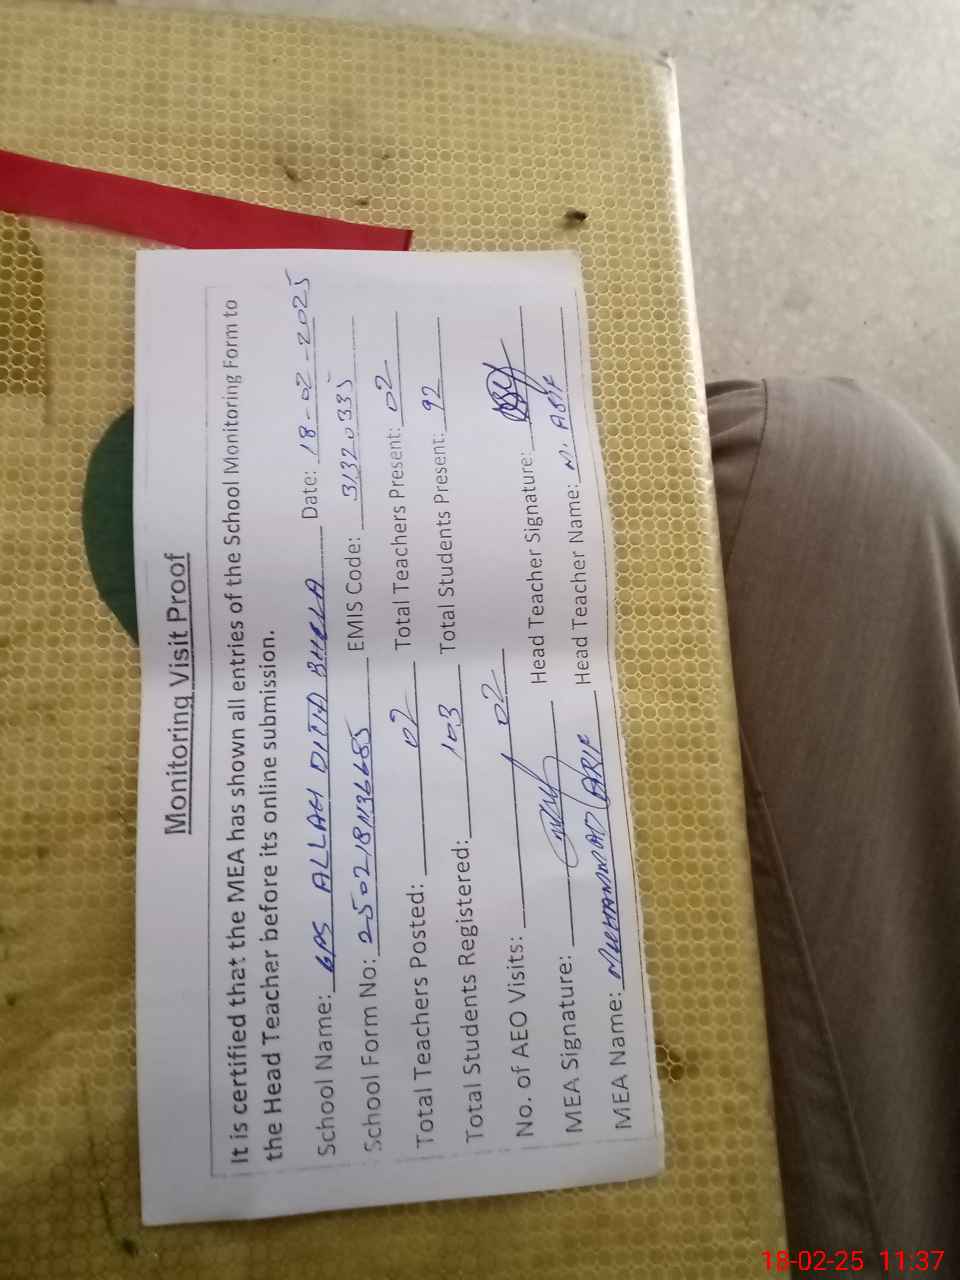 Monitoring Visit Proof
It is certified that the MEA has shown all entries of the School Monitoring Form to
the Head Teacher before its online submission.
School Name: GPS ALLAH DITTA BHELA Date: 18-02-2025
School Form No: 2502181136685 EMIS Code: 31320335
Total Teachers Posted: 02 Total Teachers Present: 02
Total Students Registered: 103 Total Students Present: 92
No. of AEO Visits: 02
MEA Signature: Head Teacher Signature:
MEA Name: MUHAMMAD ARIF Head Teacher Name: M. ASIF
18-02-25 11:37